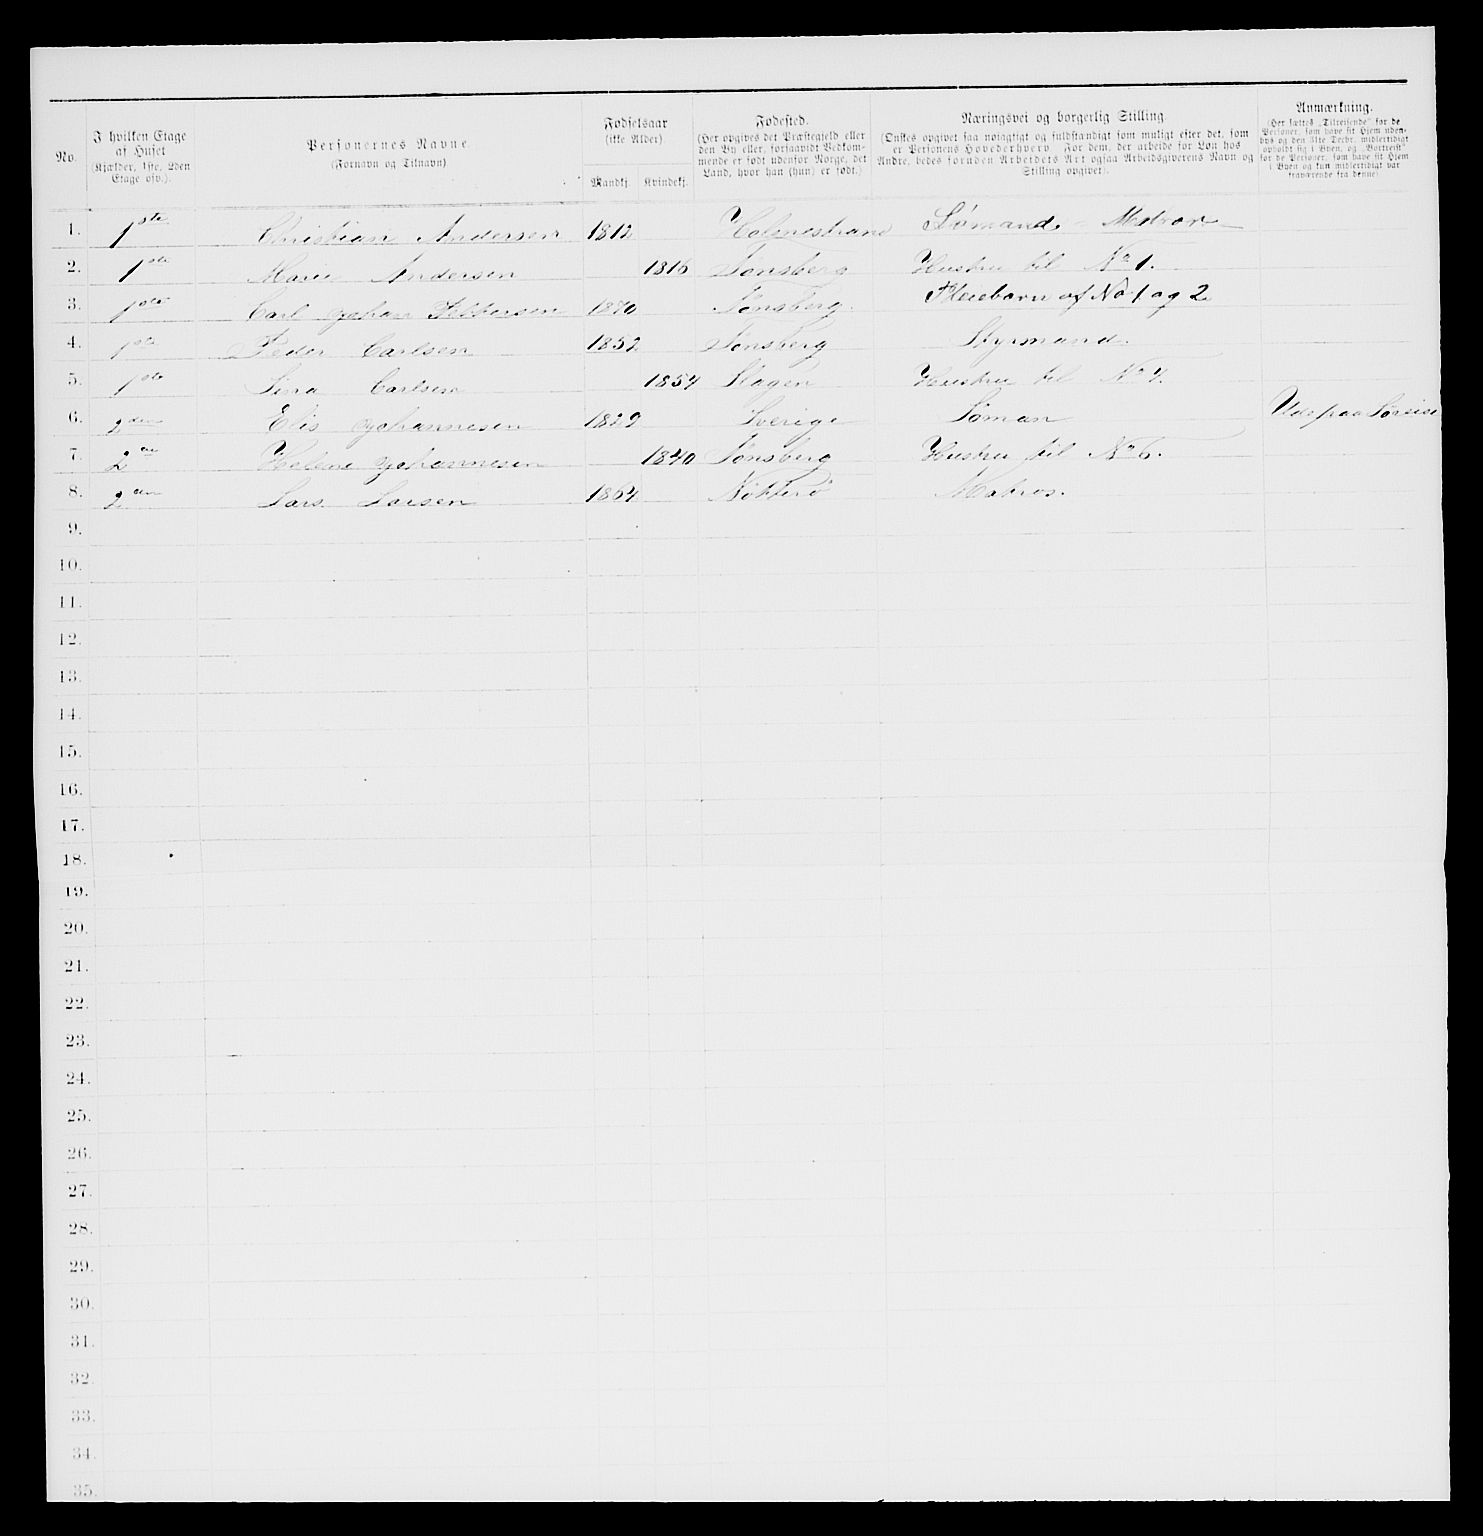 No.
I hvilken Etage af Huset (Kjælder, 1ste, 2den Etage osv.).
Personernes Navne. (Fornavn og Tilnavn)
Fødselsaar (ikke Alder)
Mandkj. Kvindekj.
Fødested. (Her opgives det Præstegjeld eller den By eller, forsaavidt Vedkommende er født udenfor Norge, det Land, hvor han (hun) er født.)
Næringsvei og borgerlig Stilling. (Ønskes opgivet saa nøiagtigt og fuldstændigt som muligt efter det, som er Personens Hovederhverv. For dem, der arbeide for Løn hos Andre, bedes foruden Arbeidets Art ogsaa Arbeidsgiverens Navn og Stilling opgivet).
Anmærkning. (Her sættes „Tilreisende“ for de Personer, som have sit Hjem udenbys og den 31te Decbr. midlertidigt opholdt sig i Byen, og „Bortreist“ for de Personer, som have sit Hjem i Byen og kun midlertidigt var fraværende fra denne)
1. 1ste Christian Andersen 1812 Holmestrand Sømand - Matros
2. 1ste Marie Andersen 1816 Tønsberg Hustru til No 1.
3. 1ste Carl Johan 1870 Tønsberg. Pleiebarn af No 1 og 2
4. 1ste Peder Carlsen 1852 Tønsberg Styrmand.
5. 1ste Sina Carlsen 1854 Slagen Hustru til No 4.
6. 2den Elis Johannesen 1829 Sverige Søman Ude paa Søreise
7. 2den Helene Johannesen 1840 Tønsberg Hustru til No 6.
8. 2den Lars Larsen 1864 Nøtterø Matros.
9.
10.
11.
12.
13.
14.
15.
16.
17.
18.
19.
20.
21.
22.
23.
24.
25.
26.
27.
28.
29.
30.
31.
32.
33.
34.
35.